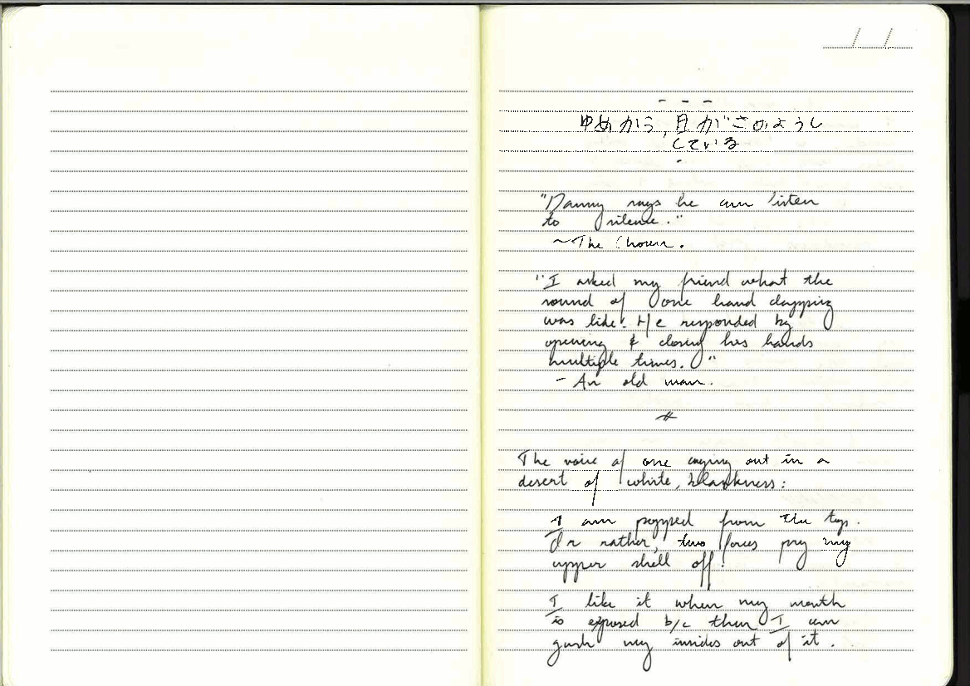 / /
- - -
ゆめから, 月がこのようし
している
-
"Danny says he can listen
to silence."
~The Chorus.
"I asked my friend what the
sound of one hand clapping
was like. He responded by
opening & closing his hands
multiple times."
- An old man.
#
The voice of one crying out in a
desert of white, blankness:
I am popped from the top.
Or rather, two forces pry my
upper shell off!
I like it when my mouth
is exposed b/c then I can
gush my insides out of it.